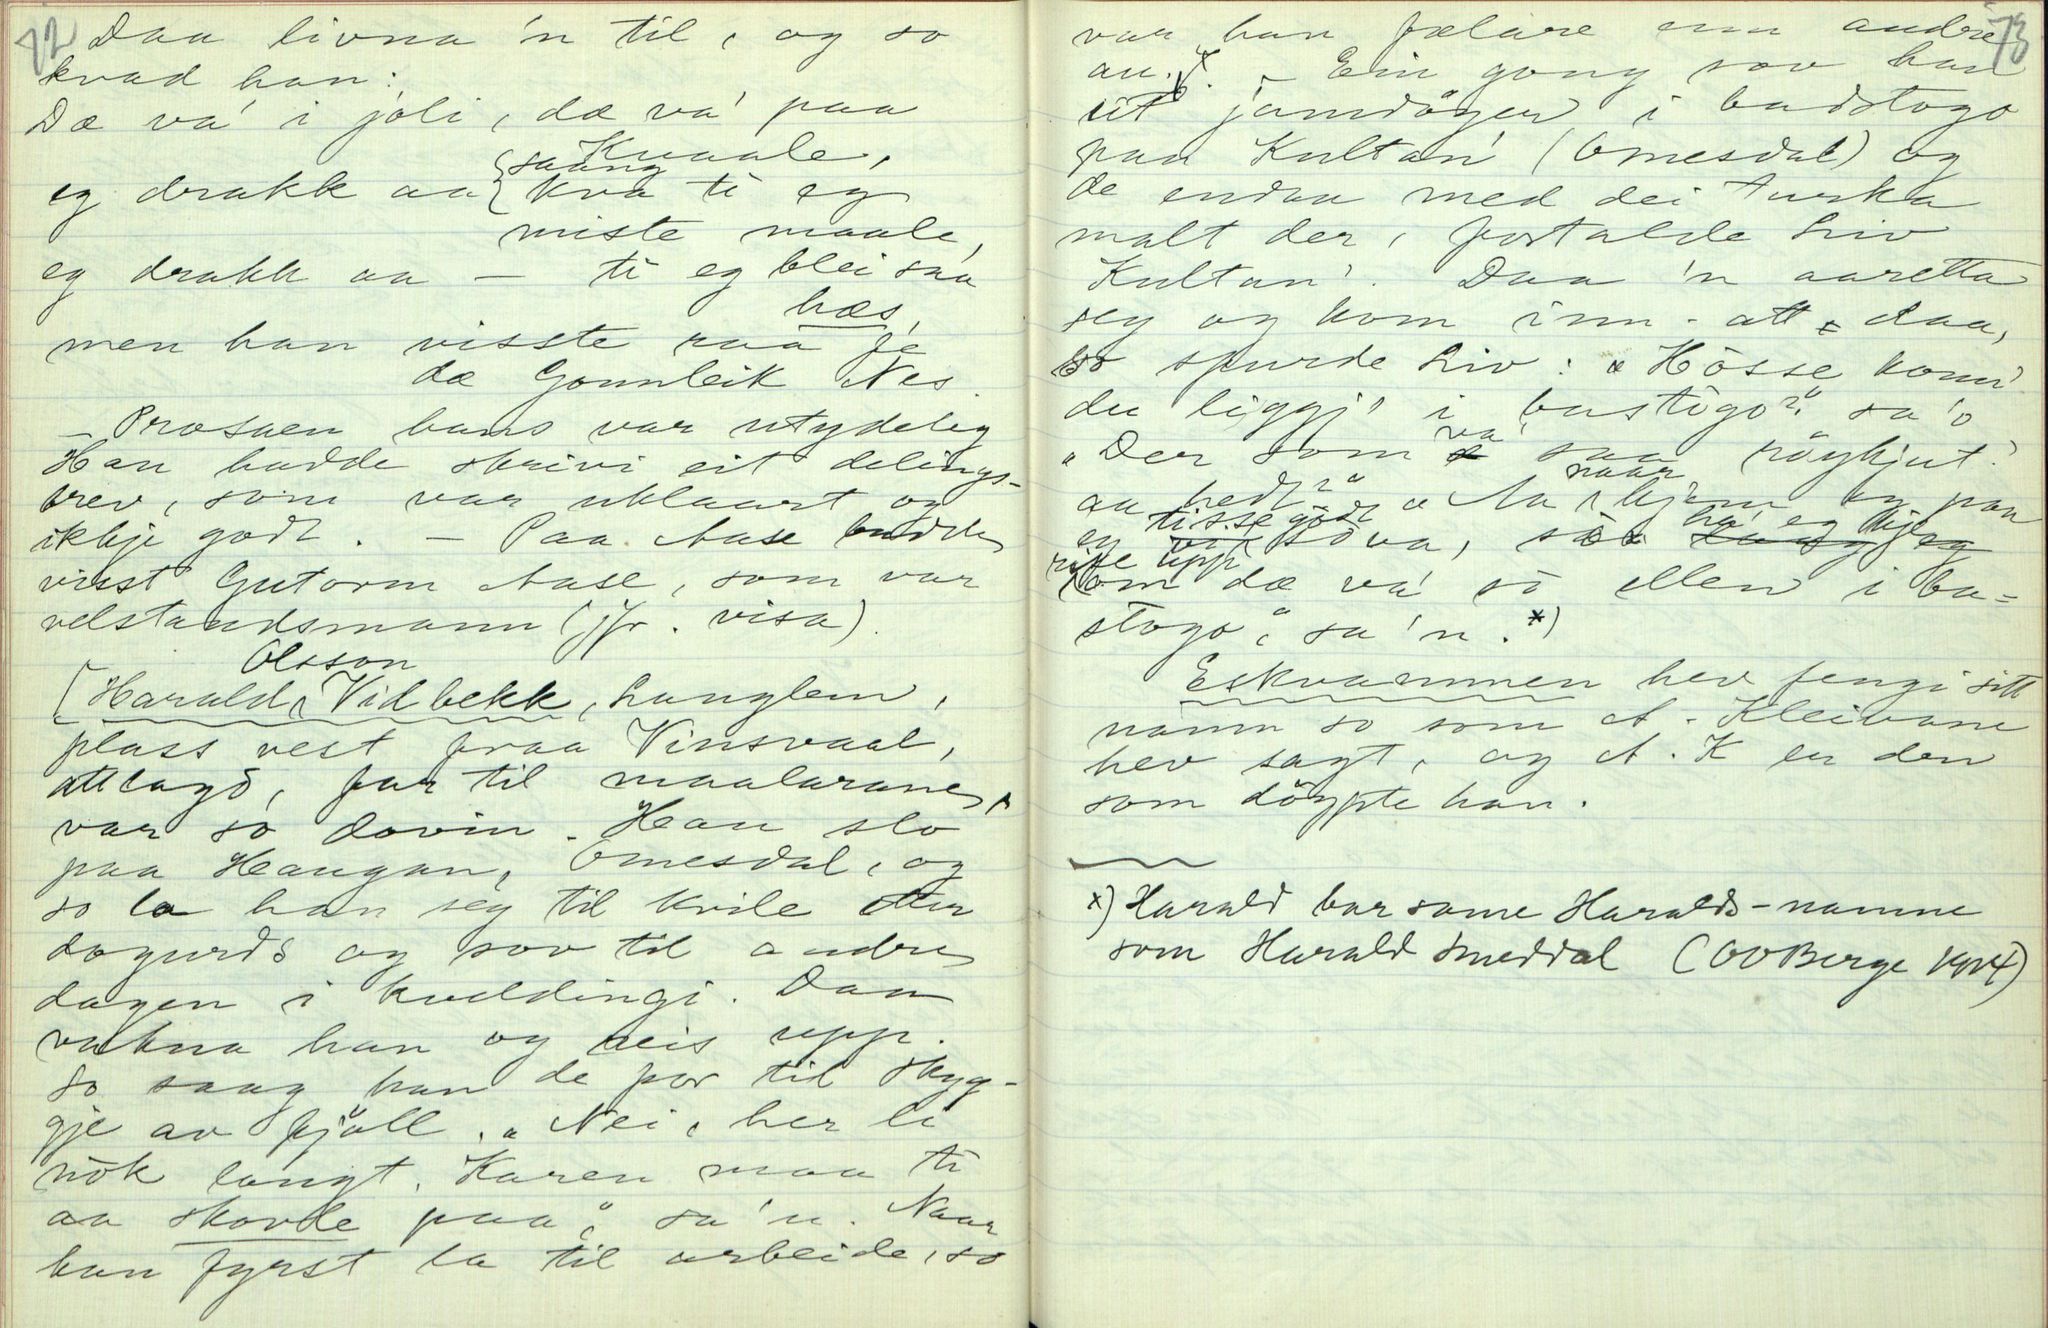 72
Daa livna 'n til, og so
kvad han:
Dæ va' i joli, dæ va' paa
Kvaale,
eg drakk aa { saang kva ti eg
miste maale,
eg drakk aa — ti eg blei saa
hæs,
men han visste raa fe
dæ Gonnleik Nes.
— Prosaen hans var utydeleg
Han hadde skrivi eit delings-
brev, som var uklaart og
ikkje godt. — Paa Aase budde
visst Gutorm Aase, som var
velstandsmann (jfr. visa).
[Harald Olsson Vidbekk, Langlem,
plass vest fraa Vinsvaal,
attlagd, far til maalarane,
var so dovin. Han slo
paa Haugan, Omesdal, og
so la han seg til kvile etter
dogurds og sov til andre
dagen i kveldingi. Daa
vakna han og reis upp.
So saag han de for til skyg-
gje av fjöll. „Nei, her li
nok langt. Karen maa ti
aa skovle paa", sa 'n. Naar
han fyrst la til arbeide, so
73
var han fælare enn andre
au. — Ein gong sov han
eit jamdöger i badstogo
paa Kultan (Omesdal) og
de endaa med dei turka
malt der, fortalde Liv
Kultan'. Daa 'n aaretta
seg og kom inn-att daa,
so spurde Liv: „Hösse konn'
du liggj' i bastogo?" sa 'o
„Der som va saa röykjut
aa hedt?" „Aa naar kjem eg paa
eg tisse godt sova, saa ha' eg kje
rise upp
om dæ va' so ellen i ba-
stogo", sa 'n. *)
Eskvammen hev fengi sitt
namn so som A. Kleivane
hev sagt, og A. K er den
som döypte han.
x) Harald bar same Haralds-namne
som Harald Smeddal (OO Berge 1914)